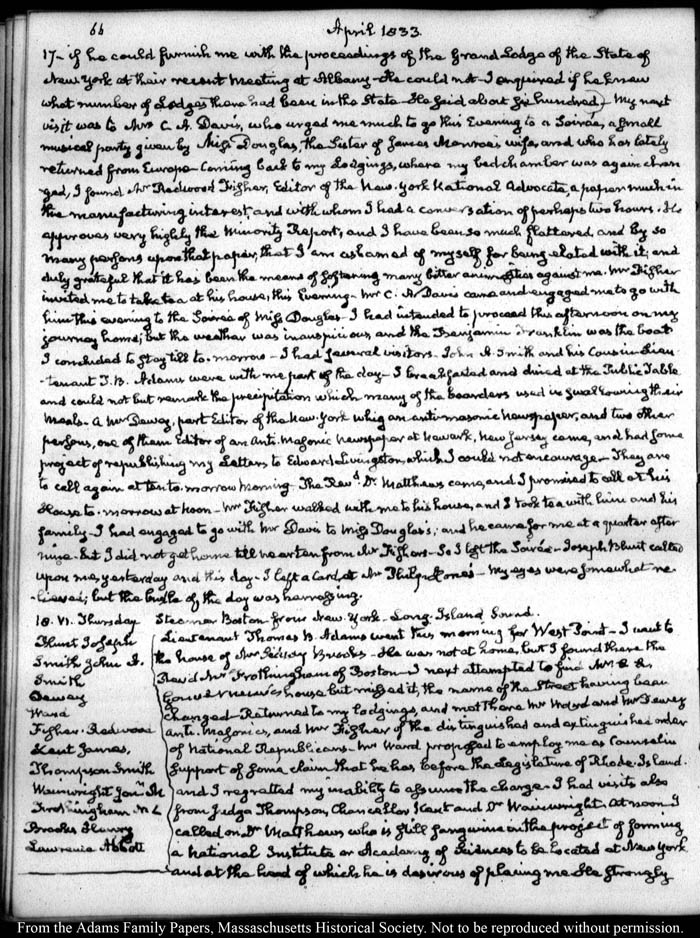 66 April 1833.
17— if he could furnish me with the proceedings of the Grand Lodge of the State of
New York at their recent meeting at Albany— He could not— I enquired if he knew
what number of Lodges there had been in the State— He said about six hundred— My next
visit was to Mrs C. A. Davis, who urged me much to go this Evening to a Soirée, a small
musical party given by Miss Douglas, the Sister of James Monroe's wife, and who has lately
returned from Europe— Coming back to my Lodgings, where my bedchamber was again chan-
ged, I found Mr Redwood Fisher, Editor of the New-York National Advocate, a paper much in
the manufacturing interest, and with whom I had a conversation of perhaps two hours. He
approves very highly the Minority Report, and I have been so much flattered, and by so
many persons upon that paper, that I am ashamed of myself for being elated with it; and
duly grateful that it has been the means of softening many bitter animosities against me. Mr Fisher
invited me to take tea at his house, this Evening— Mr C. A. Davis came and engaged me to go with
him this evening to the Soirée of Miss Douglas— I had intended to proceed this afternoon on my
journey home; but the weather was inauspicious, and the Benjamin Franklin was the boat
I concluded to stay till to-morrow— I had several visitors. John A. Smith and his Cousin Lieu-
tenant T. B. Adams were with me part of the day— I breakfasted and dined at the Public Table
and could not but remark the precipitation which many of the boarders used in swallowing their
Meals— A Mr Dewey, part Editor of the New-York whig an anti-masonic Newspaper, and two other
persons, one of them Editor of an Anti-Masonic Newspaper at Newark, New Jersey came, and had some
project of republishing my Letters to Edward Livingston, which I could not encourage— They are
to call again at ten to-morrow morning— The Revd Dr Matthews came, and I promised to call at his
House to-morrow at Noon— Mr Fisher walked with me to his house, and I took tea with him and his
family— I had engaged to go with Mr Davis to Miss Douglas's; and he came for me at a quarter after
nine. but I did not get home till near ten from Mr Fishers— So I left the Soirée— Joseph Blunt called
upon me, yesterday and this day— I left a Card, at Mr Philip Hone's— My eyes were somewhat re-
lieved; but the bustle of the day was harrassing.
18. VI. Thursday Steamer Boston from New-York— Long-Island Sound.
Blunt Joseph
Smith John A.
Smith
Dewey
Ward
Fisher. Redwood
Kent James,
Thompson Smith
Wainwright Jon. M
Frothingham N. L
Brooks Sidney
Lawrence Abbott
Lieutenant Thomas B. Adams went this morning for West Point— I went to
the house of Mr Sidney Brooks— He was not at home, but I found there the
Revd Mr Frothingham of Boston— I next attempted to find Mr
house but missed it, the name of the Street having been
changed— Returned to my lodgings, and met there Mr Ward and Mr Dewey
anti-Masonics, and Mr Fisher of the distinguished and extinguished order
of National Republicans— Mr Ward proposed to employ me as Counsel in
support of some claim that he has before the Legislature of Rhode-Island.
and I regretted my inability to assume the charge. I had visits also
from Judge Thompson, Chancellor Kent and Dr Wainwright. At noon I
called on Dr Matthews who is still sanguine in the project of forming
a National Institute or Academy of Sciences to be located at New York
and at the head of which he is desirous of placing me— He strongly
From the Adams Family Papers, Massachusetts Historical Society. Not to be reproduced without permission.